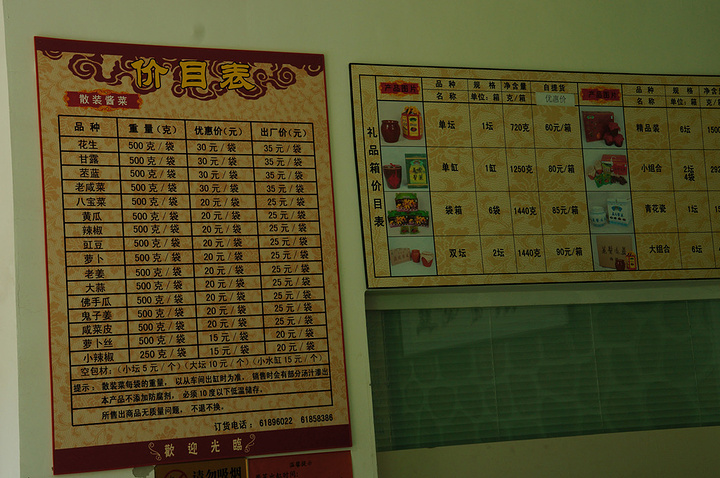 价目表
散装酱菜
品种 重量(克) 优惠价(元) 出厂价(元)
花生 500克/袋 30元/袋 35元/袋
甘露 500克/袋 30元/袋 35元/袋
苤蓝 500克/袋 30元/袋 35元/袋
老咸菜 500克/袋 30元/袋 35元/袋
八宝菜 500克/袋 20元/袋 25元/袋
黄瓜 500克/袋 20元/袋 25元/袋
辣椒 500克/袋 20元/袋 25元/袋
豇豆 500克/袋 20元/袋 25元/袋
萝卜 500克/袋 20元/袋 25元/袋
老姜 500克/袋 20元/袋 25元/袋
大蒜 500克/袋 20元/袋 25元/袋
佛手瓜 500克/袋 20元/袋 25元/袋
鬼子姜 500克/袋 20元/袋 25元/袋
咸菜皮 500克/袋 20元/袋 25元/袋
萝卜丝 500克/袋 15元/袋 20元/袋
小辣椒 250克/袋 15元/袋 20元/袋
空包材:(小坛5元/个)(大坛10元/个)(小水缸15元/个)
提示: 散装菜每袋的重量, 以从车间出缸时为准, 销售时会有部分汤汁渗出
本产品不添加防腐剂, 必须10度以下低温储存.
所售出商品无质量问题, 不退不换.
订货电话: 61896022 61858386
歡迎光臨
请勿吸烟
礼品箱价目表
产品图片 品种名称 规格单位:箱 净含量克/箱 自提货优惠价 产品图片 品种名称 规格单位:箱 净含量克/箱
单坛 1坛 720克 60元/箱 精品装 6坛
单缸 1缸 1250克 80元/箱 小组合 2坛4袋
袋箱 6袋 1440克 85元/箱 青花瓷 1坛
双坛 2坛 1440克 90元/箱 大组合 6坛